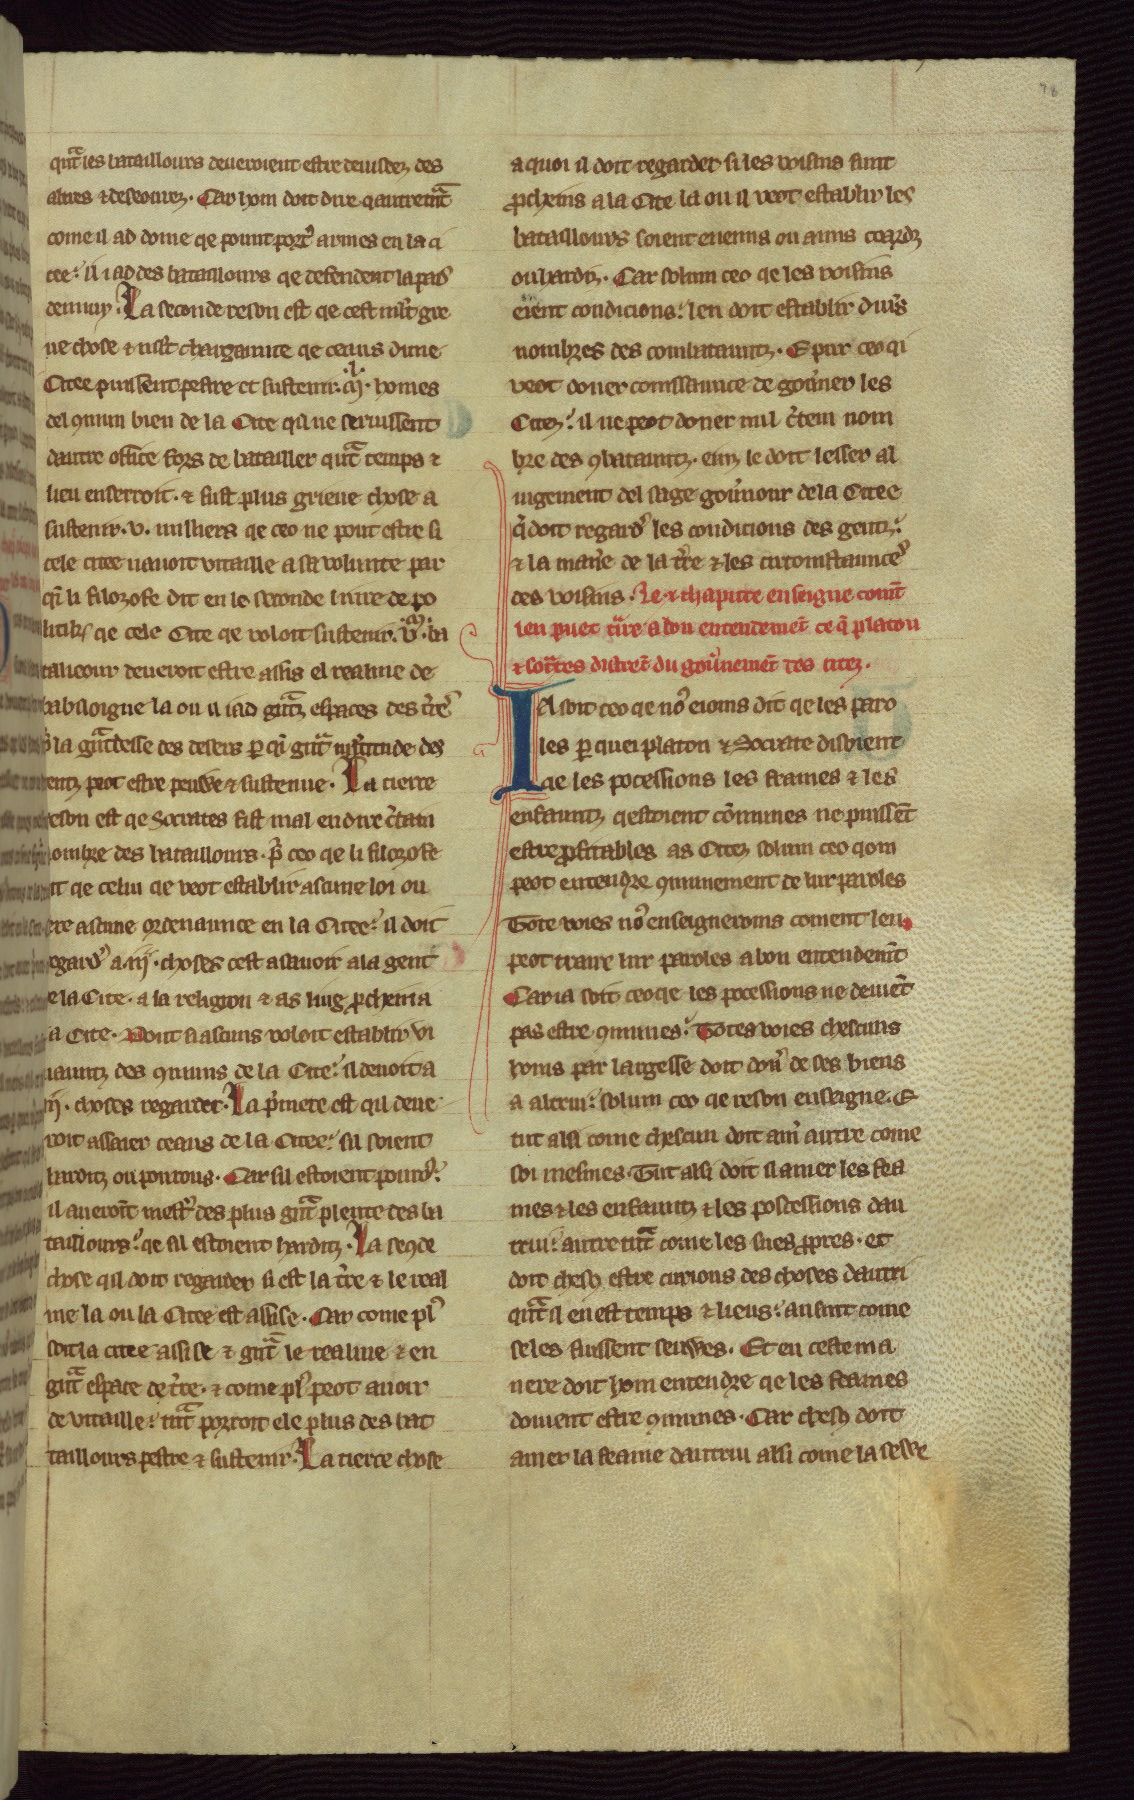 78
quant les bataillours deueroient estre deuisdez des
altres & deseourez. Car hom doit dire qautremt̃
come il ad dome qe point port' armes en la ci
tee: il i ad des bataillours qe defendent la pais
dennuy. La seconde reson est qe cest mlt' gre
ue chose & mlt chargaunce qe ceaus dune
Citee puissent pestre et sustenir homes
del 9mun bien de la Cite qil ne seruissent
dautre office fors de batailler qnt̃ temps &
lieu enserroit. & fust plus grieue chose a
sustenir .v. milliers qe ceo ne pout estre si
cele citee nauoit vitaille a sa volunte par
qi li filozofe dit en le seconde liure de po
litik̃s qe cele Cite qe voloit sustenir .v. ba
tailleour deueroit estre assis el reaume de
babiloigne la ou il iad gñtz espaces des t're
la gñtdesse des desers p qi gñt mltitude des
entz peot estre peuwe & sustenue. La tierce
reson est qe Socrates fist mal en dire c'tain
ombre des bataillours. p' ceo qe li filozofe
it qe celui qe veot establir ascune loi ou
ere ascune ordenaunce en la Citee: il doit
egard' a .iij. choses cest asauoir a la gent
e la Cite. a la religion & as liug pcheins
a Cite. Dont si ascuns voloit establir vi
iauntz des 9muns de la Cite: il deuoit a
iij. choses regarder. La p'mere est qil deue
roit assaier ceaus de la Citee: sil soient
harditz ou pourous. Car sil estoient pourous:
il aueroit mest' des plus gñt plente des ba
taillours: qe sil estoient harditz. La se9de
chose qil doit regarder si est la t're & le real
me la ou la Citee est assise. Car come pl'
soit la citee assise & gñt le realme & en
gñt espace de t're. & come pl' peot auoir
de vitaille: tñt porroit ele plus des bat
taillours pestre & sustenir. La tierce chose
a quoi il doit regarder si les voisins sunt
pcheins a la Cite la ou il veot establir les
bataillours soient enemis ou amis coardz
ou hardiz. Car solum ceo qe les voisins
eient condicions: len doit establir diu's
nombres des combatauntz. E pur ceo qi
veot doner conissaunce de gou'ner les
Citez: il ne peot doner nul c'tein nom
bre des 9batauntz. einz le doit lesser al
iugement del sage gou'nour de la Citee
q' doit regard' les condicions des gentz:
& la man'e de la t're & les circonstaunces
des voisins. Le x chapitre enseigne com̃t
len puet t'ire a bon entendemẽt ce q̃ platon
& soc'tes distrẽt du gou'nemẽt des citez.
IA soit ceo qe no' eioms dit qe les paro
les p quei platon & Socrate disoient
qe les pocessions les femmes & les
enfauntz qestoient com̃unes ne puissẽt
estre pfitables as Citez solum ceo qom
peot entendre 9munement de lur paroles
Tote voies no' enseigneroms coment len
peot traire lur paroles a bon entendem̃t
Car ia soit ceo qe les pocessions ne deiuẽt
pas estre 9munes: Totes voies chescuns
homs par largesse doit don' de ses biens
a altrui: solum ceo qe reson enseigne. E
tut alsi come chescun doit am' autre come
soi mesmes. Tut alsi doit il amer les fea
mes & les enfauntz & les possessions dau
trui: autre tñt come les sues ppres. et
doit chesc9 estre curious des choses dautri
qñt il en est temps & lieus: ausint come
se les fuissent seuwes. Et en ceste ma
nere doit hom entendre qe les feames
doiuent estre 9munes. Car chesc9 doit
amer la feame dautrui alsi come la seuwe